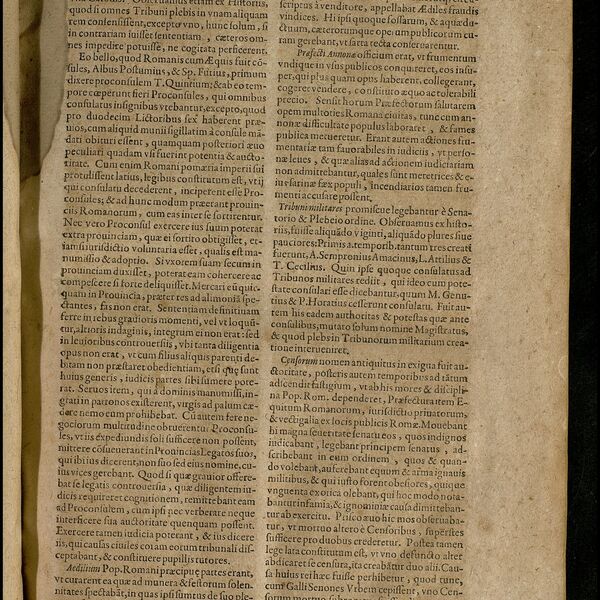 quod si omnes Tribuni plebis in vnam aliquam
rem consensissent, excepto vno, hunc solum, si
in contrariam iuisset sententiam, cæteros om-
nes impedire potuisse, ne cogitata perficerent.
Eo bello, quod Romanis cum Æquis fuit cō-
sules, Albus Postumius, & Sp. Furius, primum
dixere proconsulem T. Quintium; & ab eo tem-
pore cœperunt fieri Proconsules, qui omnibus
consulatus insignibus vtebantur, excepto, quod
pro duodecim Lictoribus sex haberent præ-
uios, cum aliquid munij sigillatim à consule mā-
dati obituri essent, quamquam posteriori æuo
peculiari quadam vsi fuerint potentia & aucto-
ritate. Cum enim Romani pomœria imperij sui
protulissent latius, legibus constitutum est, vt ij
qui consulatu decederent, inciperent esse Pro-
consules; & ad hunc modum præerant prouin-
ciis Romanorum, cum eas inter se sortirentur.
Nec vero Proconsul exercere ius suum poterat
extra prouinciam, quæ ei sortito obtigisset, et-
iam si iurisdictio voluntaria esset, qualis est ma-
numissio & adoptio. Si vxorem suam secum in
prouinciam duxisset, poterat eam coherrcere ac
compescere si forte deliquisset. Mercari eū quic-
quam in Prouincia, præter res ad alimoniā spe-
ctantes, fas non erat. Sententiam definitiuam
ferre in rebus gradioris momenti, vel vt loquūt-
tur, altioris indaginis, integrum ei non erat: sed
in leuioribus controuersiis, vbi tanta diligentia
opus non erat, vt cum filius aliquis parenti de-
bitam non præstaret obedientiam, etsi quę sunt
huius generis, iudicis partes sibi sumere pote-
rat. Seruos item, qui à dominis manumissi, in-
grati in patronos existerent, virgis ad palum cæ-
dere nemo eum prohibebat. Cū autem fere ne-
gociorum multitudine obruerentur Proconsu-
les, vt iis expediundis soli sufficere non possent,
mittere cōsueuerant in Prouincias Legatos suos,
quibus ii ius dicerent, non suo sed eius nomine, cu-
ius vices gerebant. Quod si quæ grauior offere-
bat se legatis controuersia, quæ diligentem iu-
dicis requireret cognitionem, remittebant eam
ad Proconsulem, cum ipsi nec verberare neque
interficere sua auctoritate quenquam possent.
Exercere tamen iudicia poterant, & ius dicere
iis, qui causas ciuiles coram eorum tribunali dis-
ceptabant, & constituere pupillis tutores.
Aedilium Pop. Romani præcipuę partes erant,
vt curarent ea quæ ad munera & festorum solen-
nitates spectabāt, in quas ipsi sumtus de suo ple-
scriptus à venditore, appellabat Ædiles fraudis
vindices. Hi ipsi quoque fossarum, & aquædu-
ctuum, cæterorumque operum publicorum cu-
ram gerebant, vt sarta tecta conseruarentur.
Præfecti Annonæ officium erat, vt frumentum
vndique in vsus publicos conquireret, eos insu-
per, qui plus quam opus haberent, collegerant,
cogere vendere, constituto æquo ac tolerabili
precio. Sensit horum Præfectorum salutarem
opem multoties Romana ciuitas, tunc cum an-
nonæ difficultate populus laboraret, & fames
publica metueretur. Erant autem actiones fru-
mentariæ tam fauorabiles in iudiciis, vt perso-
næ leues, & quæ alias ad actionem iudiciariam
non admittebantur, quales sunt meretrices & e-
iusfarinæ fæx populi, incendiarios tamen fru-
menti accusare possent.
Tribuni militares promiscue legebantur è Sena-
torio & Plebeio ordine. Obseruamus ex histo-
riis, fuisse aliquādo viginti, aliquādo plures siue
pauciores: Primis a. temporib. tantum tres creati
fuerant, A. Sempronius Amacinus, L. Attilius &
T. Cecilius. Quin ipse quoque consulatus ad
Tribunos militares rediit, qui ideo cum pote-
state consulari esse dicebantur. quum M. Genu-
tius & P. Horatius cesserunt consulatu. Fuit au-
tem his eadem authoritas & potestas quæ ante
consulibus, mutato solum nomine Magistratus,
& quod plebis in Tribunorum militarium crea-
tione interueniret.
Censorum nomen antiquitus in exigua fuit au-
ctoritate, posteris autem temporibus ad tātum
adscendit fastigium, vt ab his mores & discipli-
na Pop. Rom. dependeret, Præfectura item E-
quitum Romanorum, iurisdictio priuatorum,
& vectigalia ex locis publicis Romæ. Mouebant
hi magna seueritate senatu eos, quos indignos
iudicabant, legebant principem senatus, ad-
scribebant in eum ordinem, quos & quan-
do volebant, auferebant equum & arma ignauis
militibus, & qui iusto forent obesiores, quique
vnguenta exotica olebant, qui hoc modo nota-
bantur infamia, & ignominiæ causa dimittebā-
tur ab exercitu. Prisco æuo hic mos obseruaba-
tur, vt mortuo altero è Censoribus, superstes
sufficere pro duobus crederetur. Postea tamen
lege lata constitutum est, vt vno defuncto alter
abdicaret se censura, ita creabātur duo alii. Cau-
sa huius rei hæc fuisse perhibetur, quod tunc,
cum Galli Senones Vrbem cepissent, vno Cen-